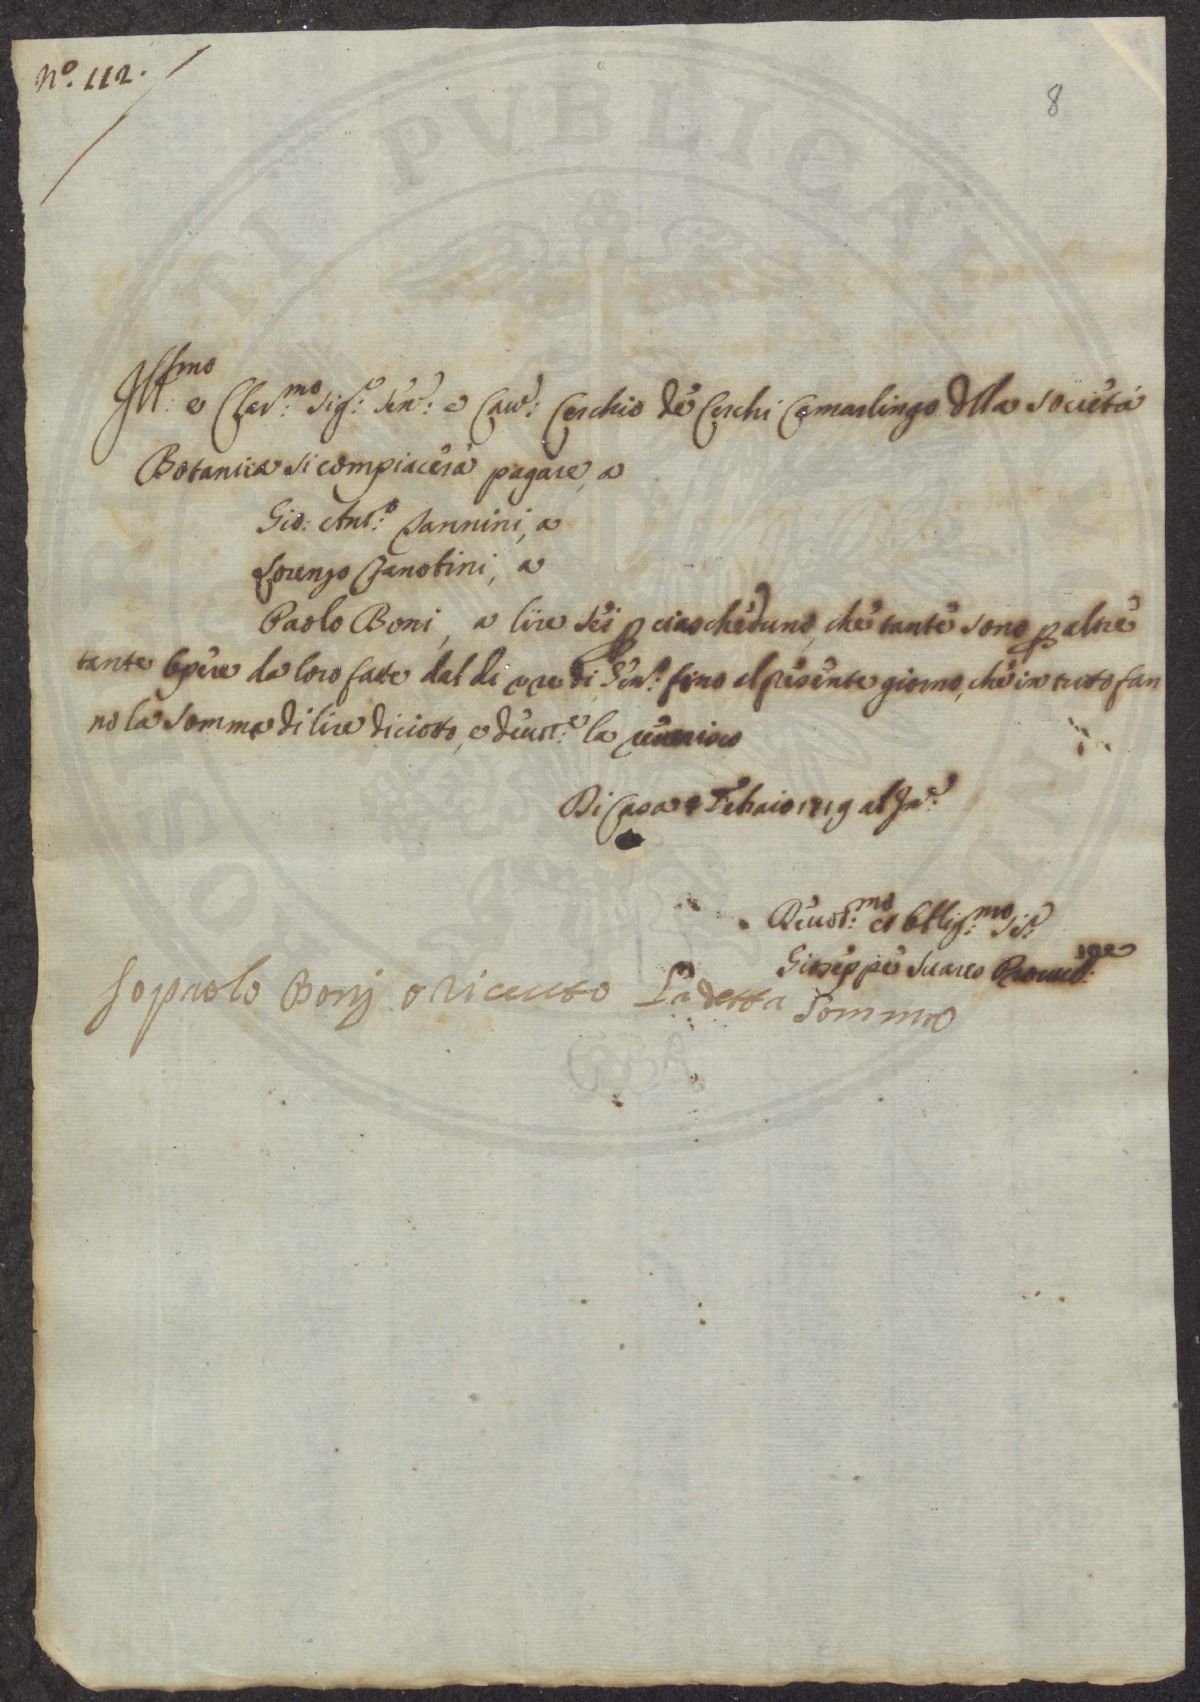 N.º 112.
8
Ill:mo e Clar:mo Sig:e Sen: e Cav: Cerchio dé Cerchi Camarlingo della Società
Botanica si compiacerà pagare, a
Gio: Ant:o Nannini, a
Lorenzo Zanobini, a
Paolo Boni, a lire sei p ciascheduno, ché tanté sono p altre
tante opere da loro fatte dal di di Gen:o fino al presente giorno, ché in tutto fan
no la somma di lire diciotto, e devot:e la riverisco
Di Casa Febraio 1719 ab In:e
Devot:mo et Obblig:mo Se:
Giuseppé Suares Proved:re
Io paolo Bonj o riceuto La detta somma